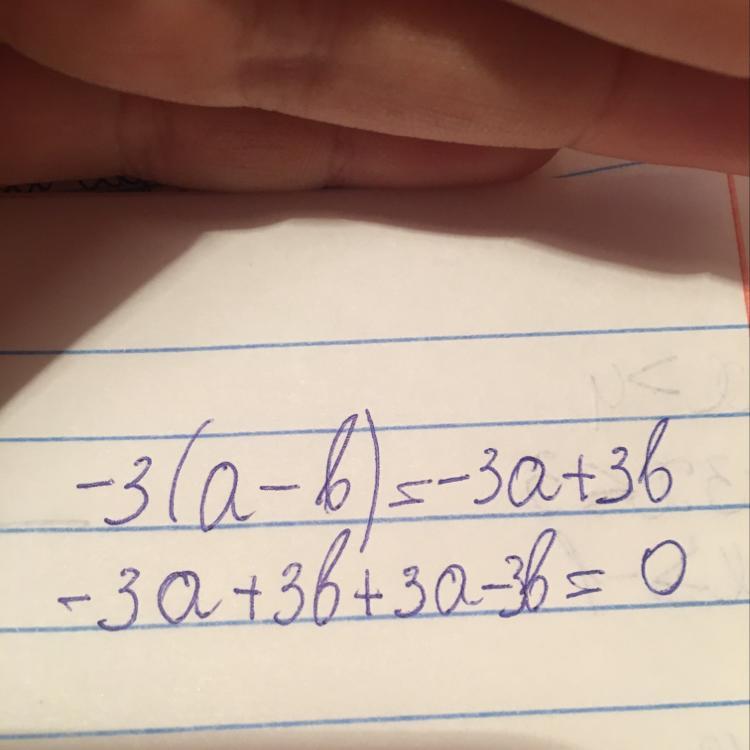 -3(a-b)=-3a+3b
-3a+3b+3a-3b=0